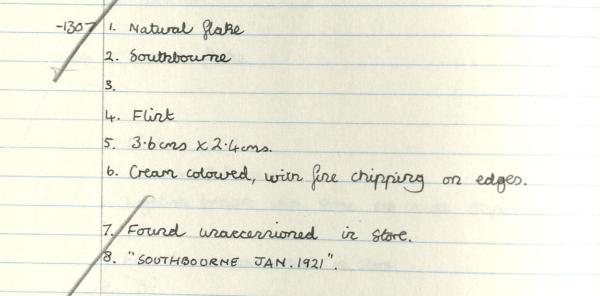 -1307 1. Natural flake
2. Southbourne
3.
4. Flint
5. 3.6cms x 2.4cms.
6. Cream coloured, with fine chipping on edges.
7. Found unaccessioned in store.
8. "SOUTHBOORNE JAN. 1921".